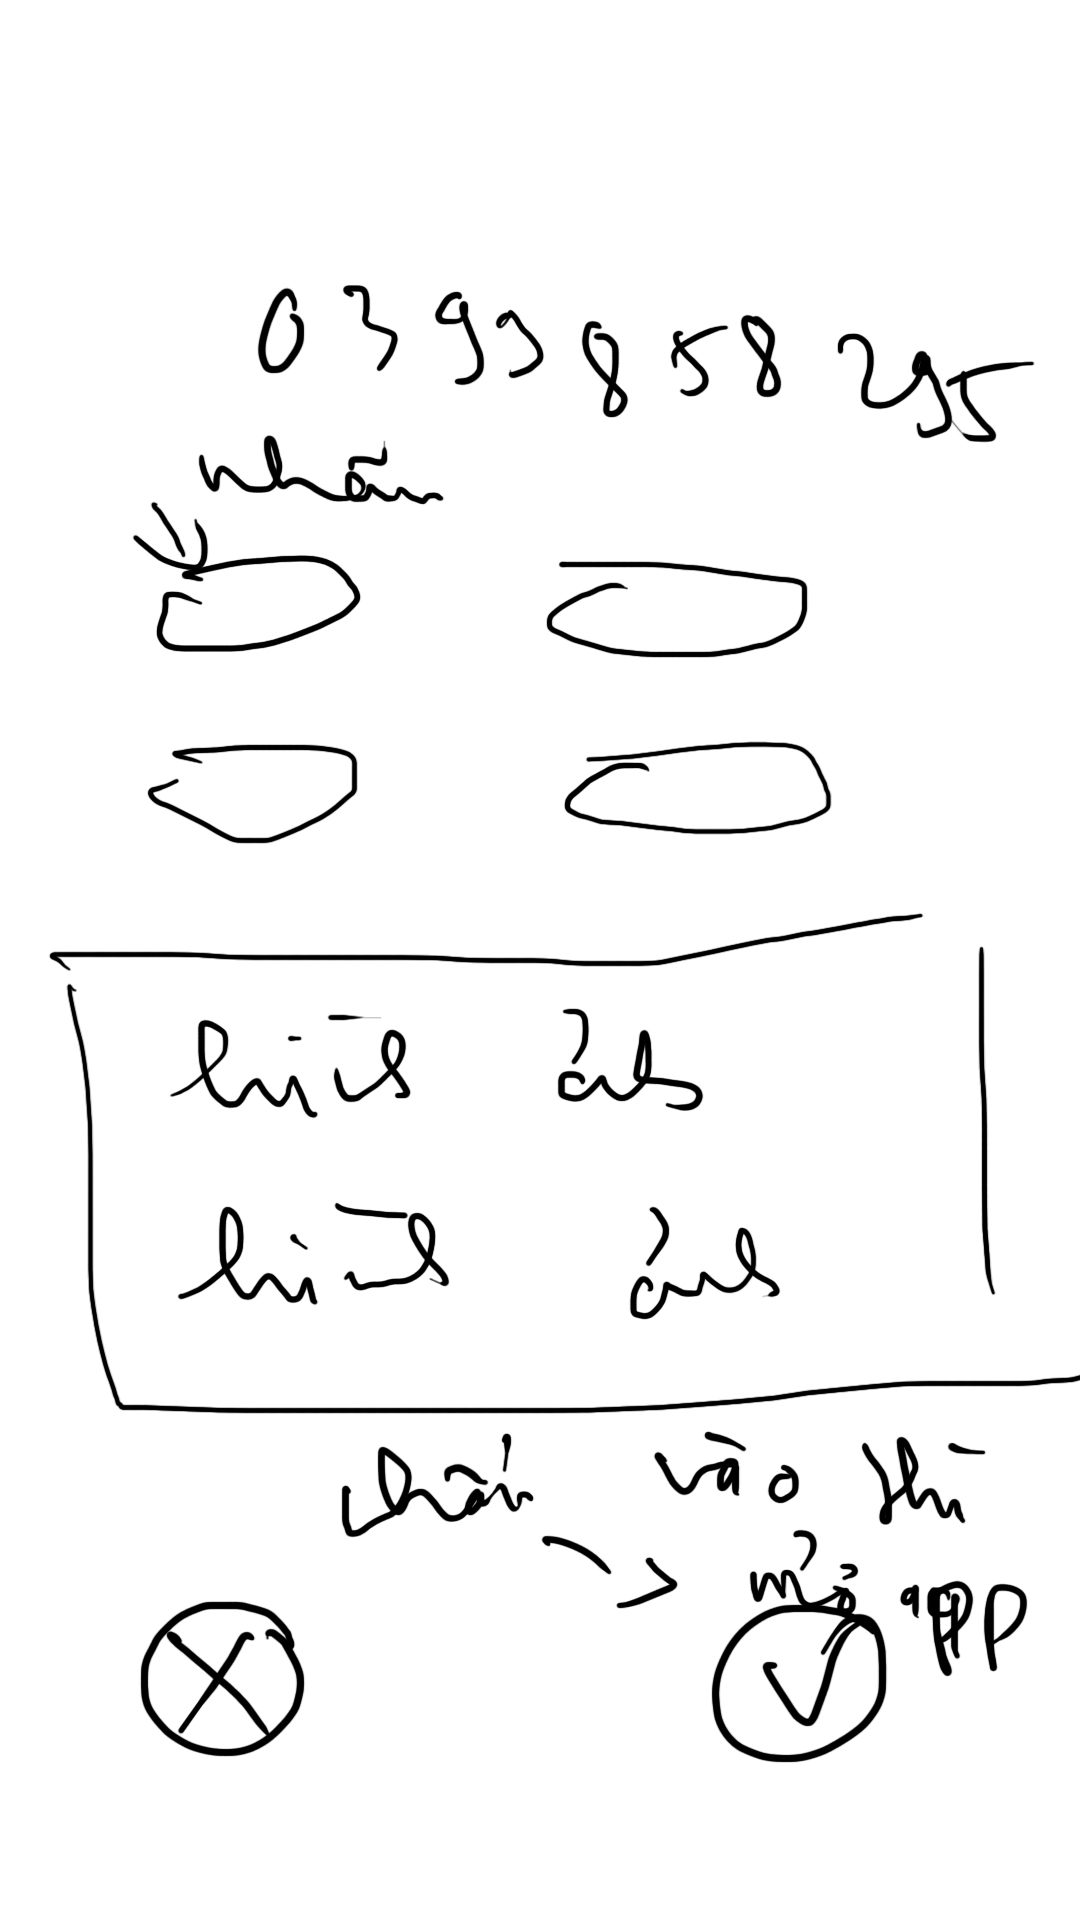 0399858295
nhãn
hình ảnh
hình ảnh
nhấn vào thì
mở app